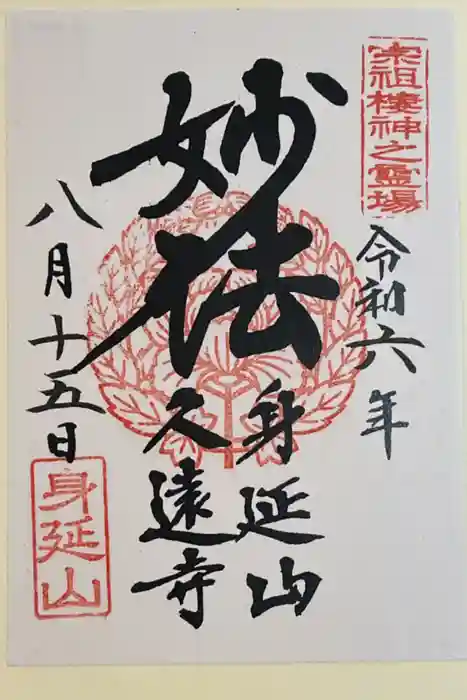 宗祖棲神之霊場
令和六年
妙法
身延山
久遠寺
八月十五日
身延山